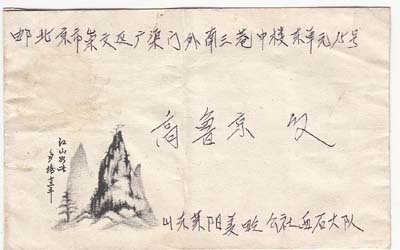 邮北京市崇文区广渠门外南三巷中楼东单元15号
高鲁京 收
江山如此
多娇
山东莱阳姜疃公社西石大队